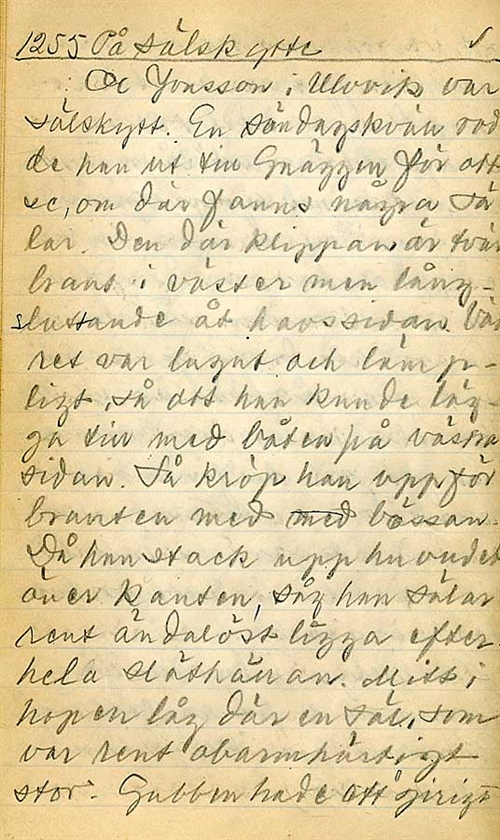 1255 På sälskytte
Ol Jonsson i Ulvvik var
sälskytt. En söndagskväll rod-
de han ut till Gnäggen för att
se, om där fanns några sä
lar. Den där klippan är tvär
brant i väster men lång-
sluttande åt havssidan. Väd
ret var lugnt och lämp-
ligt, så att han kunde läg-
ga till med båten på västra
sidan. Så kröp han uppför
branten med med bössan.
Då han stack upp huvudet
över kanten, såg han sälar
rent ändalöst ligga efter
hela släthällan. Mitt i
hopen låg där en säl, som
var rent obarmhärtigt
stor. Gubben hade ett girigt